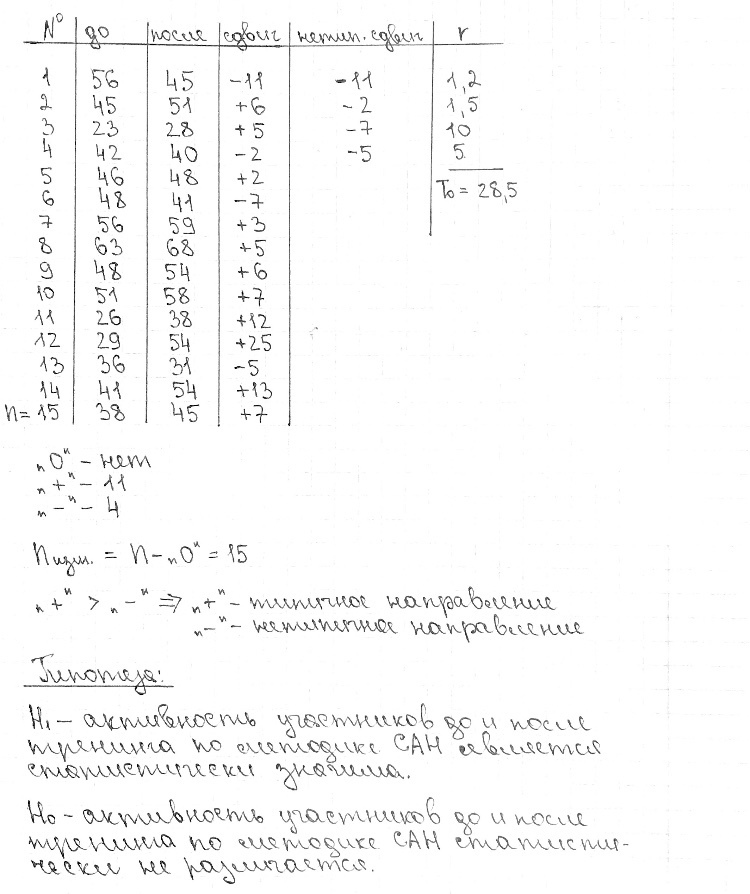 № до после сдвиг нетип. сдвиг r
1 56 45 -11 -11 1,2
2 45 51 +6 -2 1,5
3 23 28 +5 -7 10
4 42 40 -2 -5 5
5 46 48 +2 T₀ = 28,5
6 48 41 -7
7 56 59 +3
8 63 68 +5
9 48 54 +6
10 51 58 +7
11 26 38 +12
12 29 54 +25
13 36 31 -5
14 41 54 +13
n=15 38 45 +7
„0" - нет
„+" - 11
„-" - 4
nизм. = n-„0" = 15
„+" > „-" ⇒ „+" - типичное направление
„-" - нетипичное направление
Гипотеза:
H₁ - активность участников до и после
тренинга по методике САН является
статистически значима.
H₀ - активность участников до и после
тренинга по методике САН статисти-
чески не различается.